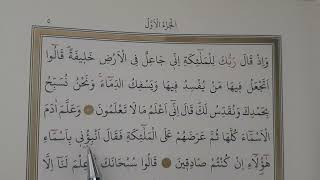 الجزء الاول
٥
وَإِذْ قَالَ رَبُّكَ لِلْمَلٰٓئِكَةِ اِنّ۪ي جَاعِلٌ فِي الْاَرْضِ خَل۪يفَةًۜ قَالُٓوا
اَتَجْعَلُ ف۪يهَا مَنْ يُفْسِدُ ف۪يهَا وَيَسْفِكُ الدِّمَٓاءَۚ وَنَحْنُ نُسَبِّحُ
بِحَمْدِكَ وَنُقَدِّسُ لَكَۜ قَالَ اِنّ۪ٓي اَعْلَمُ مَا لَا تَعْلَمُونَ وَعَلَّمَ اٰدَمَ
الْاَسْمَٓاءَ كُلَّهَا ثُمَّ عَرَضَهُمْ عَلَى الْمَلٰٓئِكَةِ فَقَالَ اَنْبِؤُ۫ن۪ي بِاَسْمَٓاءِ
هٰٓؤُ۬لَٓاءِ اِنْ كُنْتُمْ صَادِق۪ينَ قَالُوا سُبْحَانَكَ لَا عِلْمَ لَنَٓا اِلَّا